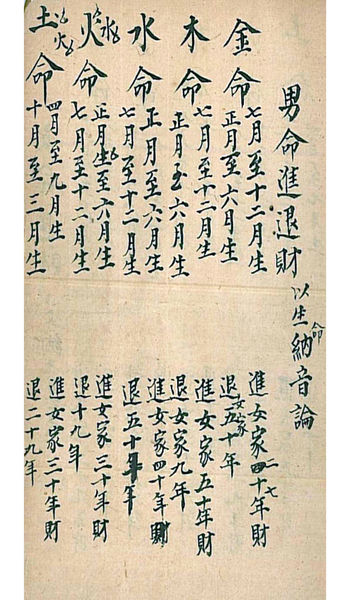 男命進退財 以生命納音論
金命 正月至六月生 進女家四十年財
七月至十二月生 退女家五十年
木命 正月至六月生 進女家五十年財
七月至十二月生 退女家九年
水命 正月至六月生 進女家四十年財
七月至十二月生 退五十年
火命 正月生至六月生 進女家三十年財
七月至十二月生 退十九年
土命 四月至九月生 進女家三十年財
十月至三月生 退二十九年